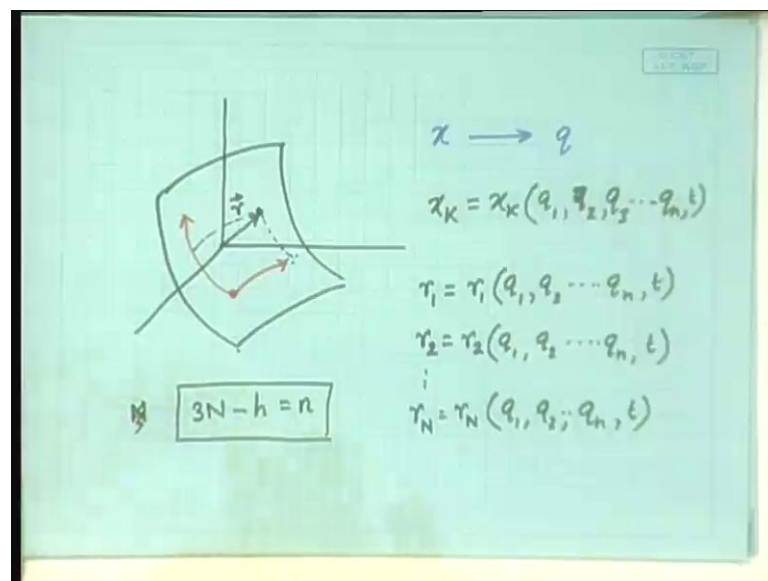 x → q
x_K = x_K (q_1, q_2, q_3 ··· q_n, t)
r⃗
r_1 = r_1 (q_1, q_2 ···· q_n, t)
r_2 = r_2 (q_1, q_2 ···· q_n, t)
⋮
r_N = r_N (q_1, q_2, ·· q_n, t)
3N - h = n